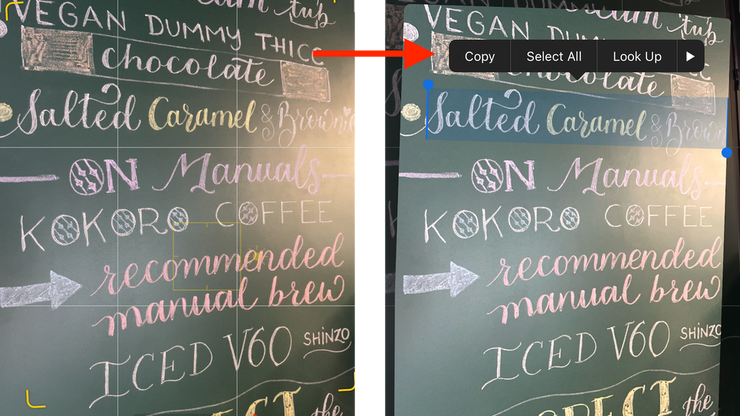 tub
VEGAN DUMMY THICC
chocolate
Salted Caramel & Browni
ON Manuals
KOKORO COFFEE
recommended
manual brew
ICED V60 SHINZO
the
tub
VEGAN DUMMY THICC
Copy Select All Look Up
chocolate
Salted Caramel & Brown
ON Manuals
KOKORO COFFEE
recommended
manual brew
ICED V60 SHINZO
the